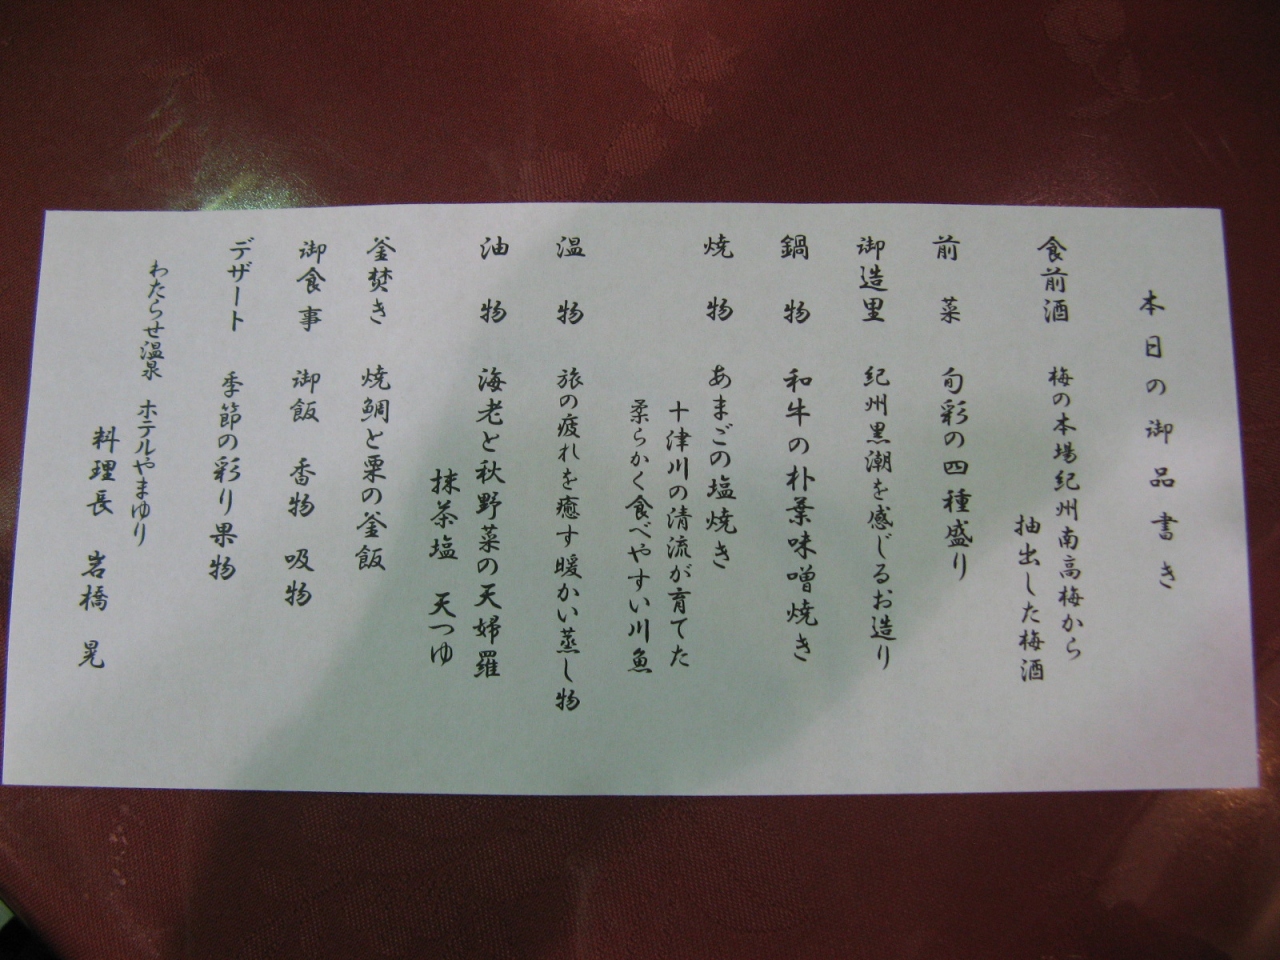 本日の御品書き
食前酒 梅の本場紀州南高梅から
抽出した梅酒
前菜 旬彩の四種盛り
御造里 紀州黒潮を感じるお造り
鍋物 和牛の朴葉味噌焼き
焼物 あまごの塩焼き
十津川の清流が育てた
柔らかく食べやすい川魚
温物 旅の疲れを癒す暖かい蒸し物
油物 海老と秋野菜の天婦羅
抹茶塩 天つゆ
釜焚き 焼鯛と栗の釜飯
御食事 御飯 香物 吸物
デザート 季節の彩り果物
わたらせ温泉 ホテルやまゆり
料理長 岩橋 晃